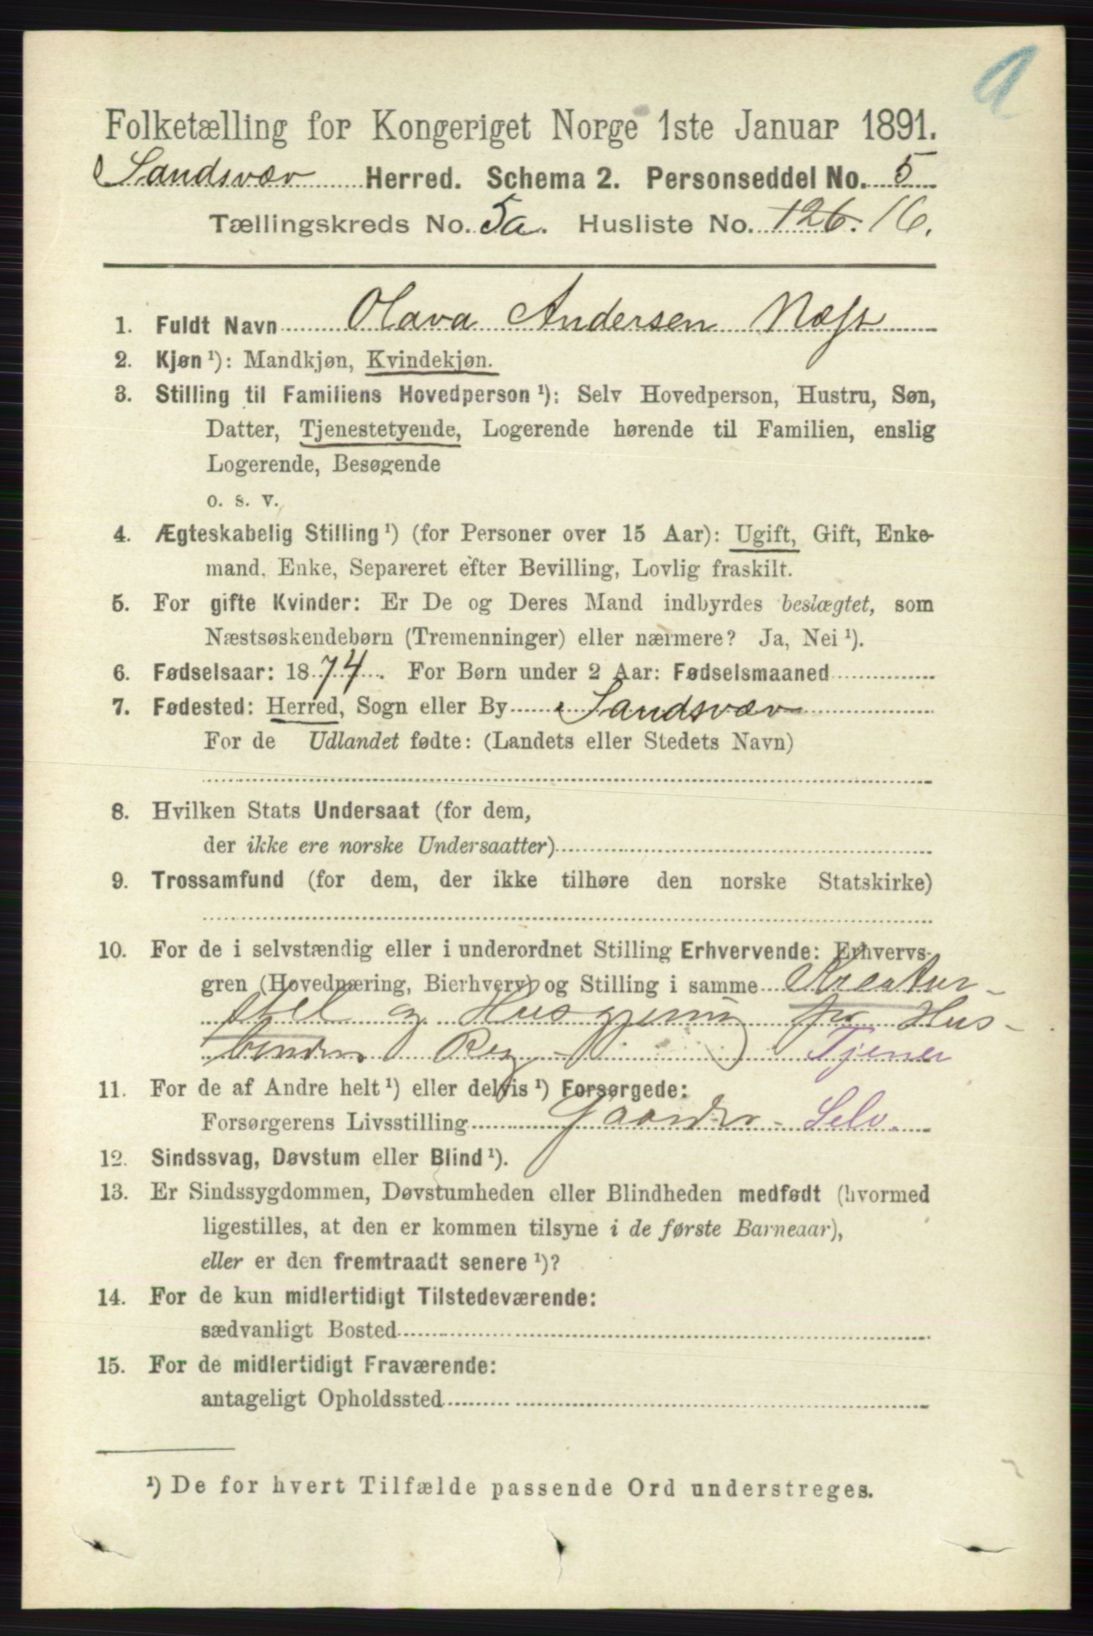 a
Folketælling for Kongeriget Norge 1ste Januar 1891.
Sandsvær Herred. Schema 2. Personseddel No. 5
Tællingskreds No. 5a. Husliste No. 126. 16.
1. Fuldt Navn Olava Andersen Næss
2. Kjøn ¹): Mandkjøn, Kvindekjøn.
3. Stilling til Familiens Hovedperson ¹): Selv Hovedperson, Hustru, Søn,
Datter, Tjenestetyende, Logerende hørende til Familien, enslig
Logerende, Besøgende
o. s. v.
4. Ægteskabelig Stilling ¹) (for Personer over 15 Aar): Ugift, Gift, Enke-
mand, Enke, Separeret efter Bevilling, Lovlig fraskilt.
5. For gifte Kvinder: Er De og Deres Mand indbyrdes beslægtet, som
Næstsøskendebørn (Tremenninger) eller nærmere? Ja, Nei ¹).
6. Fødselsaar: 1874. For Børn under 2 Aar: Fødselsmaaned
7. Fødested: Herred, Sogn eller By Sandsvær
For de Udlandet fødte: (Landets eller Stedets Navn)
8. Hvilken Stats Undersaat (for dem,
der ikke ere norske Undersaatter)
9. Trossamfund (for dem, der ikke tilhøre den norske Statskirke)
10. For de i selvstændig eller i underordnet Stilling Erhvervende: Erhvervs-
gren (Hovednæring, Bierhverv) og Stilling i samme Kreatur-
stel og Husgjerning for Hus-
bondens Reg - Tjener
11. For de af Andre helt ¹) eller delvis ¹) Forsørgede:
Forsørgerens Livsstilling Gaardbr - Selv.
12. Sindssvag, Døvstum eller Blind ¹).
13. Er Sindssygdommen, Døvstumheden eller Blindheden medfødt (hvormed
ligestilles, at den er kommen tilsyne i de første Barneaar),
eller er den fremtraadt senere ¹)?
14. For de kun midlertidigt Tilstedeværende:
sædvanligt Bosted
15. For de midlertidigt Fraværende:
antageligt Opholdssted
¹) De for hvert Tilfælde passende Ord understreges.